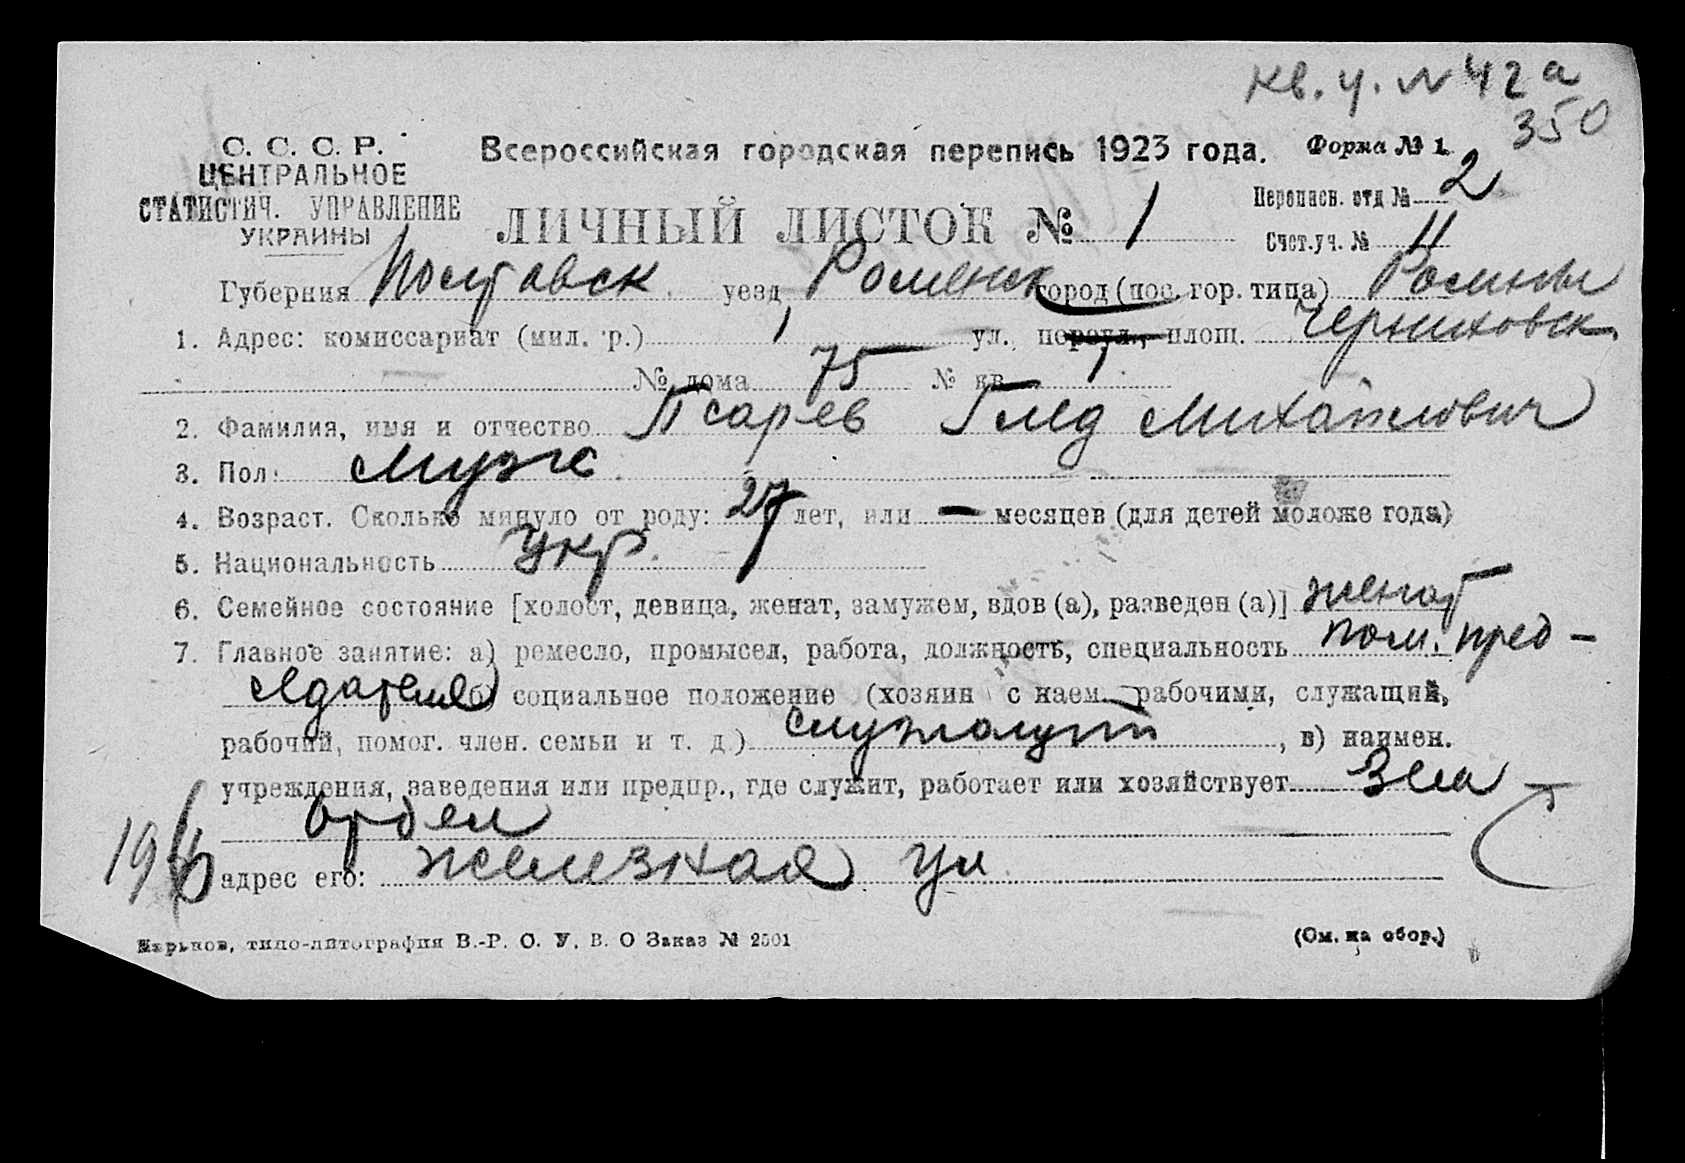 Кв. у. № 42а
350
С. С. С. Р.
ЦЕНТРАЛЬНОЕ
СТАТИСТИЧ. УПРАВЛЕНИЕ
УКРАИНЫ
Всероссийская городская перепись 1923 года.
Форма № 1.
ЛИЧНЫЙ ЛИСТОК № 1
Переписн. отд № 2
Счет.уч. № 11
Губерния Полтавск уезд Роменск город (пос. гор. типа) Ромны
1. Адрес: комиссариат (мил. р.) 1 ул. переул., площ. Черниховск
№ дома 75 № кв. 1
2. Фамилия, имя и отчество Псарев Глед Михайлович
3. Пол: Муж
4. Возраст. Сколько минуло от роду: 27 лет, или — месяцев (для детей моложе года)
5. Национальность Укр.
6. Семейное состояние [холост, девица, женат, замужем, вдов (а), разведен (а)] женат
7. Главное занятие: а) ремесло, промысел, работа, должность, специальность пом. пред-
седателя б) социальное положение (хозяин с наем. рабочими, служащий,
рабочий, помог. член. семьи и т. д.) служащий, в) наимен.
учреждения, заведения или предпр., где служит, работает или хозяйствует Зем
отдел
адрес его: Железная ул
Харьков, типо-литография В.-Р. О. У. В. О Заказ № 2501
(См. на обор.)